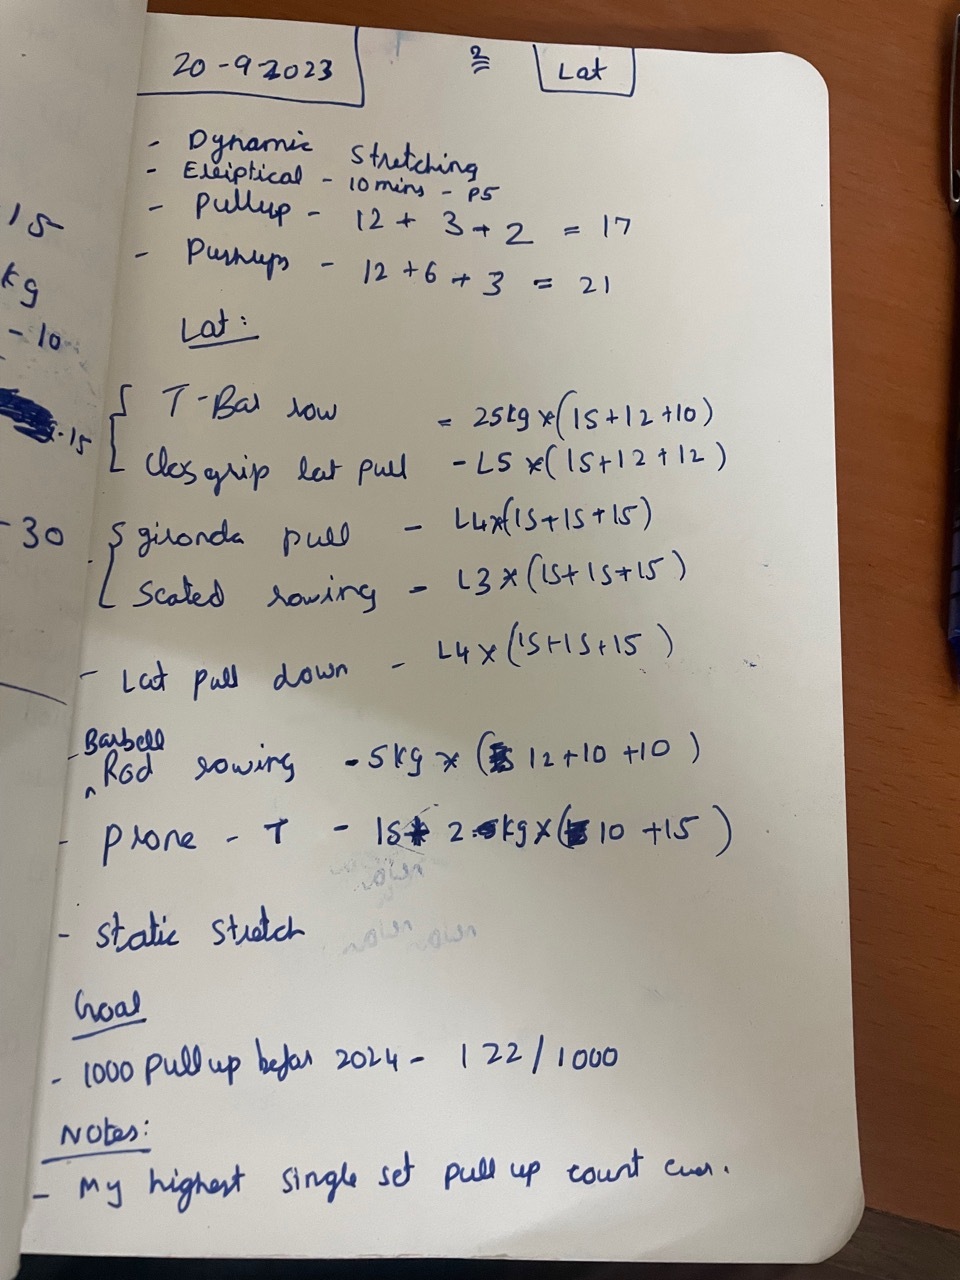 20-9-2023
2
Lat
- Dynamic Stretching
- Elliptical - 10 mins - P5
- Pullup - 12 + 3 + 2 = 17
- Pushups - 12 + 6 + 3 = 21
Lat:
T-Bar row = 25kg x (15+12+10)
Clos grip lat pull - L5 x (15+12+12)
gironda pull - L4x(15+15+15)
Seated rowing - L3 x (15+15+15)
- Lat pull down - L4 x (15+15+15)
- Barbell
Rod rowing - 5kg x (12+10+10)
- Prone - T - 15 2 kg x (10 +15)
- Static Stretch
Goal
- 1000 Pull up before 2024 - 122/1000
Notes:
- My highest single set pull up count ever.
15
kg
- 10
-15
- 30